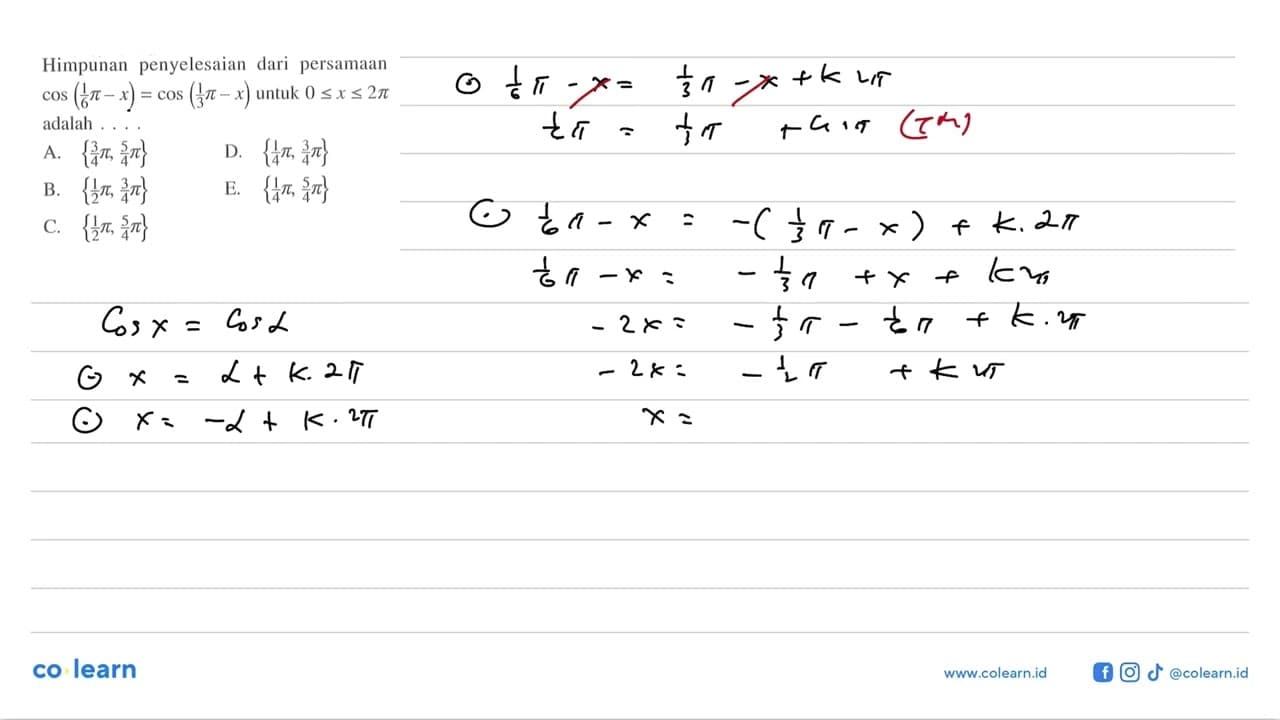 Himpunan penyelesaian dari persamaan
cos (1/6 π – x) = cos (1/3 π – x) untuk 0 ≤ x ≤ 2π
adalah . . . .
A. {3/4 π, 5/4 π}
B. {1/2 π, 3/4 π}
C. {1/2 π, 5/4 π}
D. {1/4 π, 3/4 π}
E. {1/4 π, 5/4 π}
Cos x = Cos α
⊙ x = α + k. 2π
⊙ x = -α + k. 2π
⊙ 1/6 π - x = 1/3 π - x + k 2π
1/6 π = 1/3 π + k 2π (TM)
⊙ 1/6 π - x = -(1/3 π - x) + k. 2π
1/6 π - x = - 1/3 π + x + k 2π
- 2x = - 1/3 π - 1/6 π + k. 2π
- 2x = - 1/2 π + k 2π
x =
co learn
www.colearn.id
@colearn.id